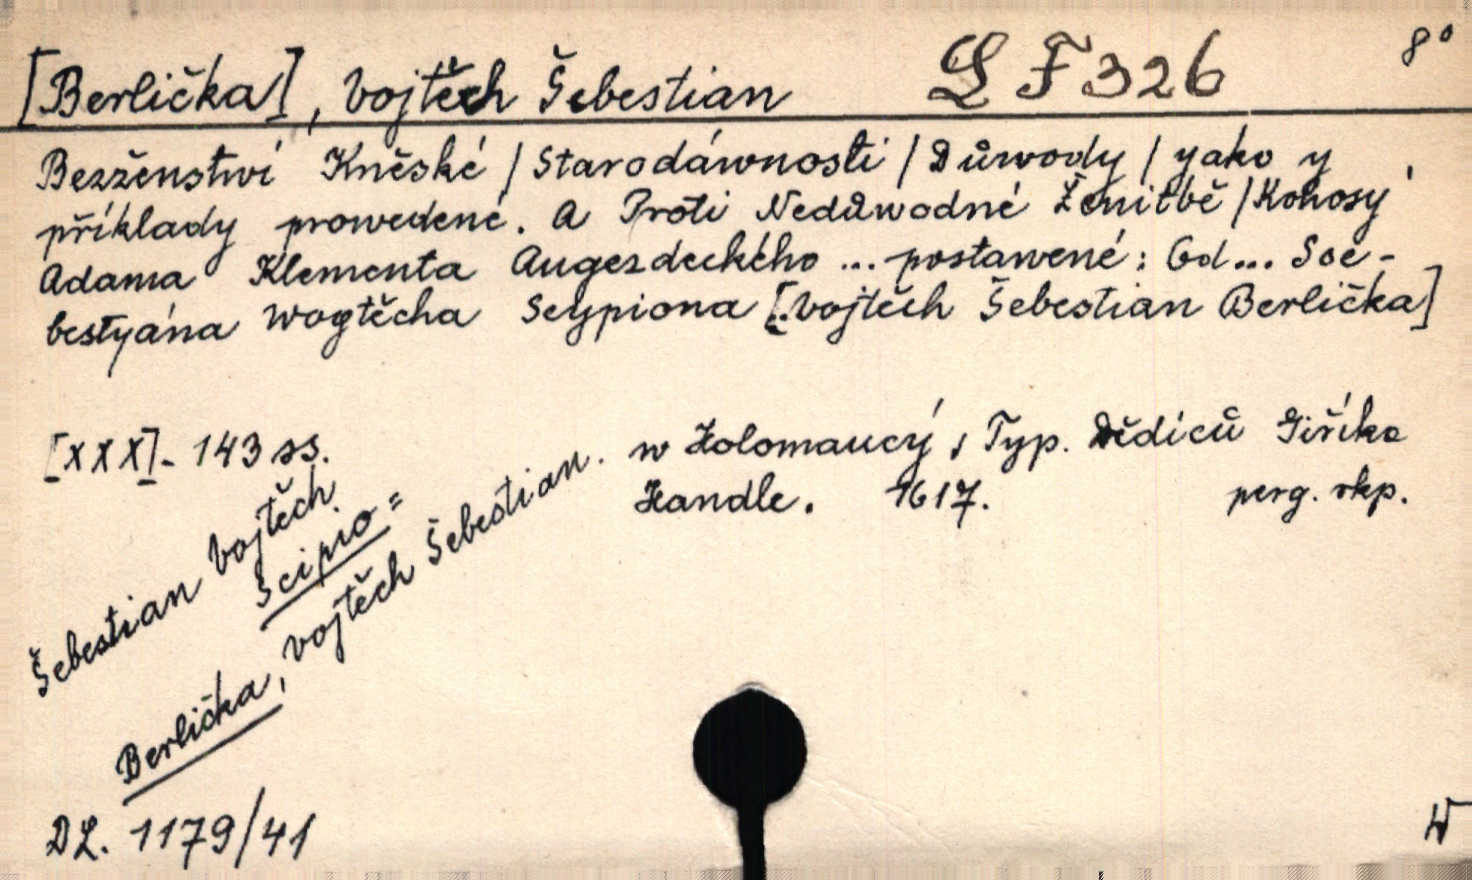 [Berlička], Vojtěch Šebestian LF326 8°
Bezženstwí Kněské / Starodáwnosti / Důwody / yako y
příklady prowedené. A Proti Nedůwodné Ženitbě / Kohosy
Adama Klementa Augezdeckého ... postawené: Od ... Sse-
bestyána Wogtěcha Scypiona [Vojtěch Šebestian Berlička]
[XXX]- 143 ss. w Holomaucý, Typ. Dědiců Giříka
Handle. 1617. perg. rkp.
Šebestian Vojtěch
Scipio =
Berlička, Vojtěch Šebestian.
DL. 1179/41
W